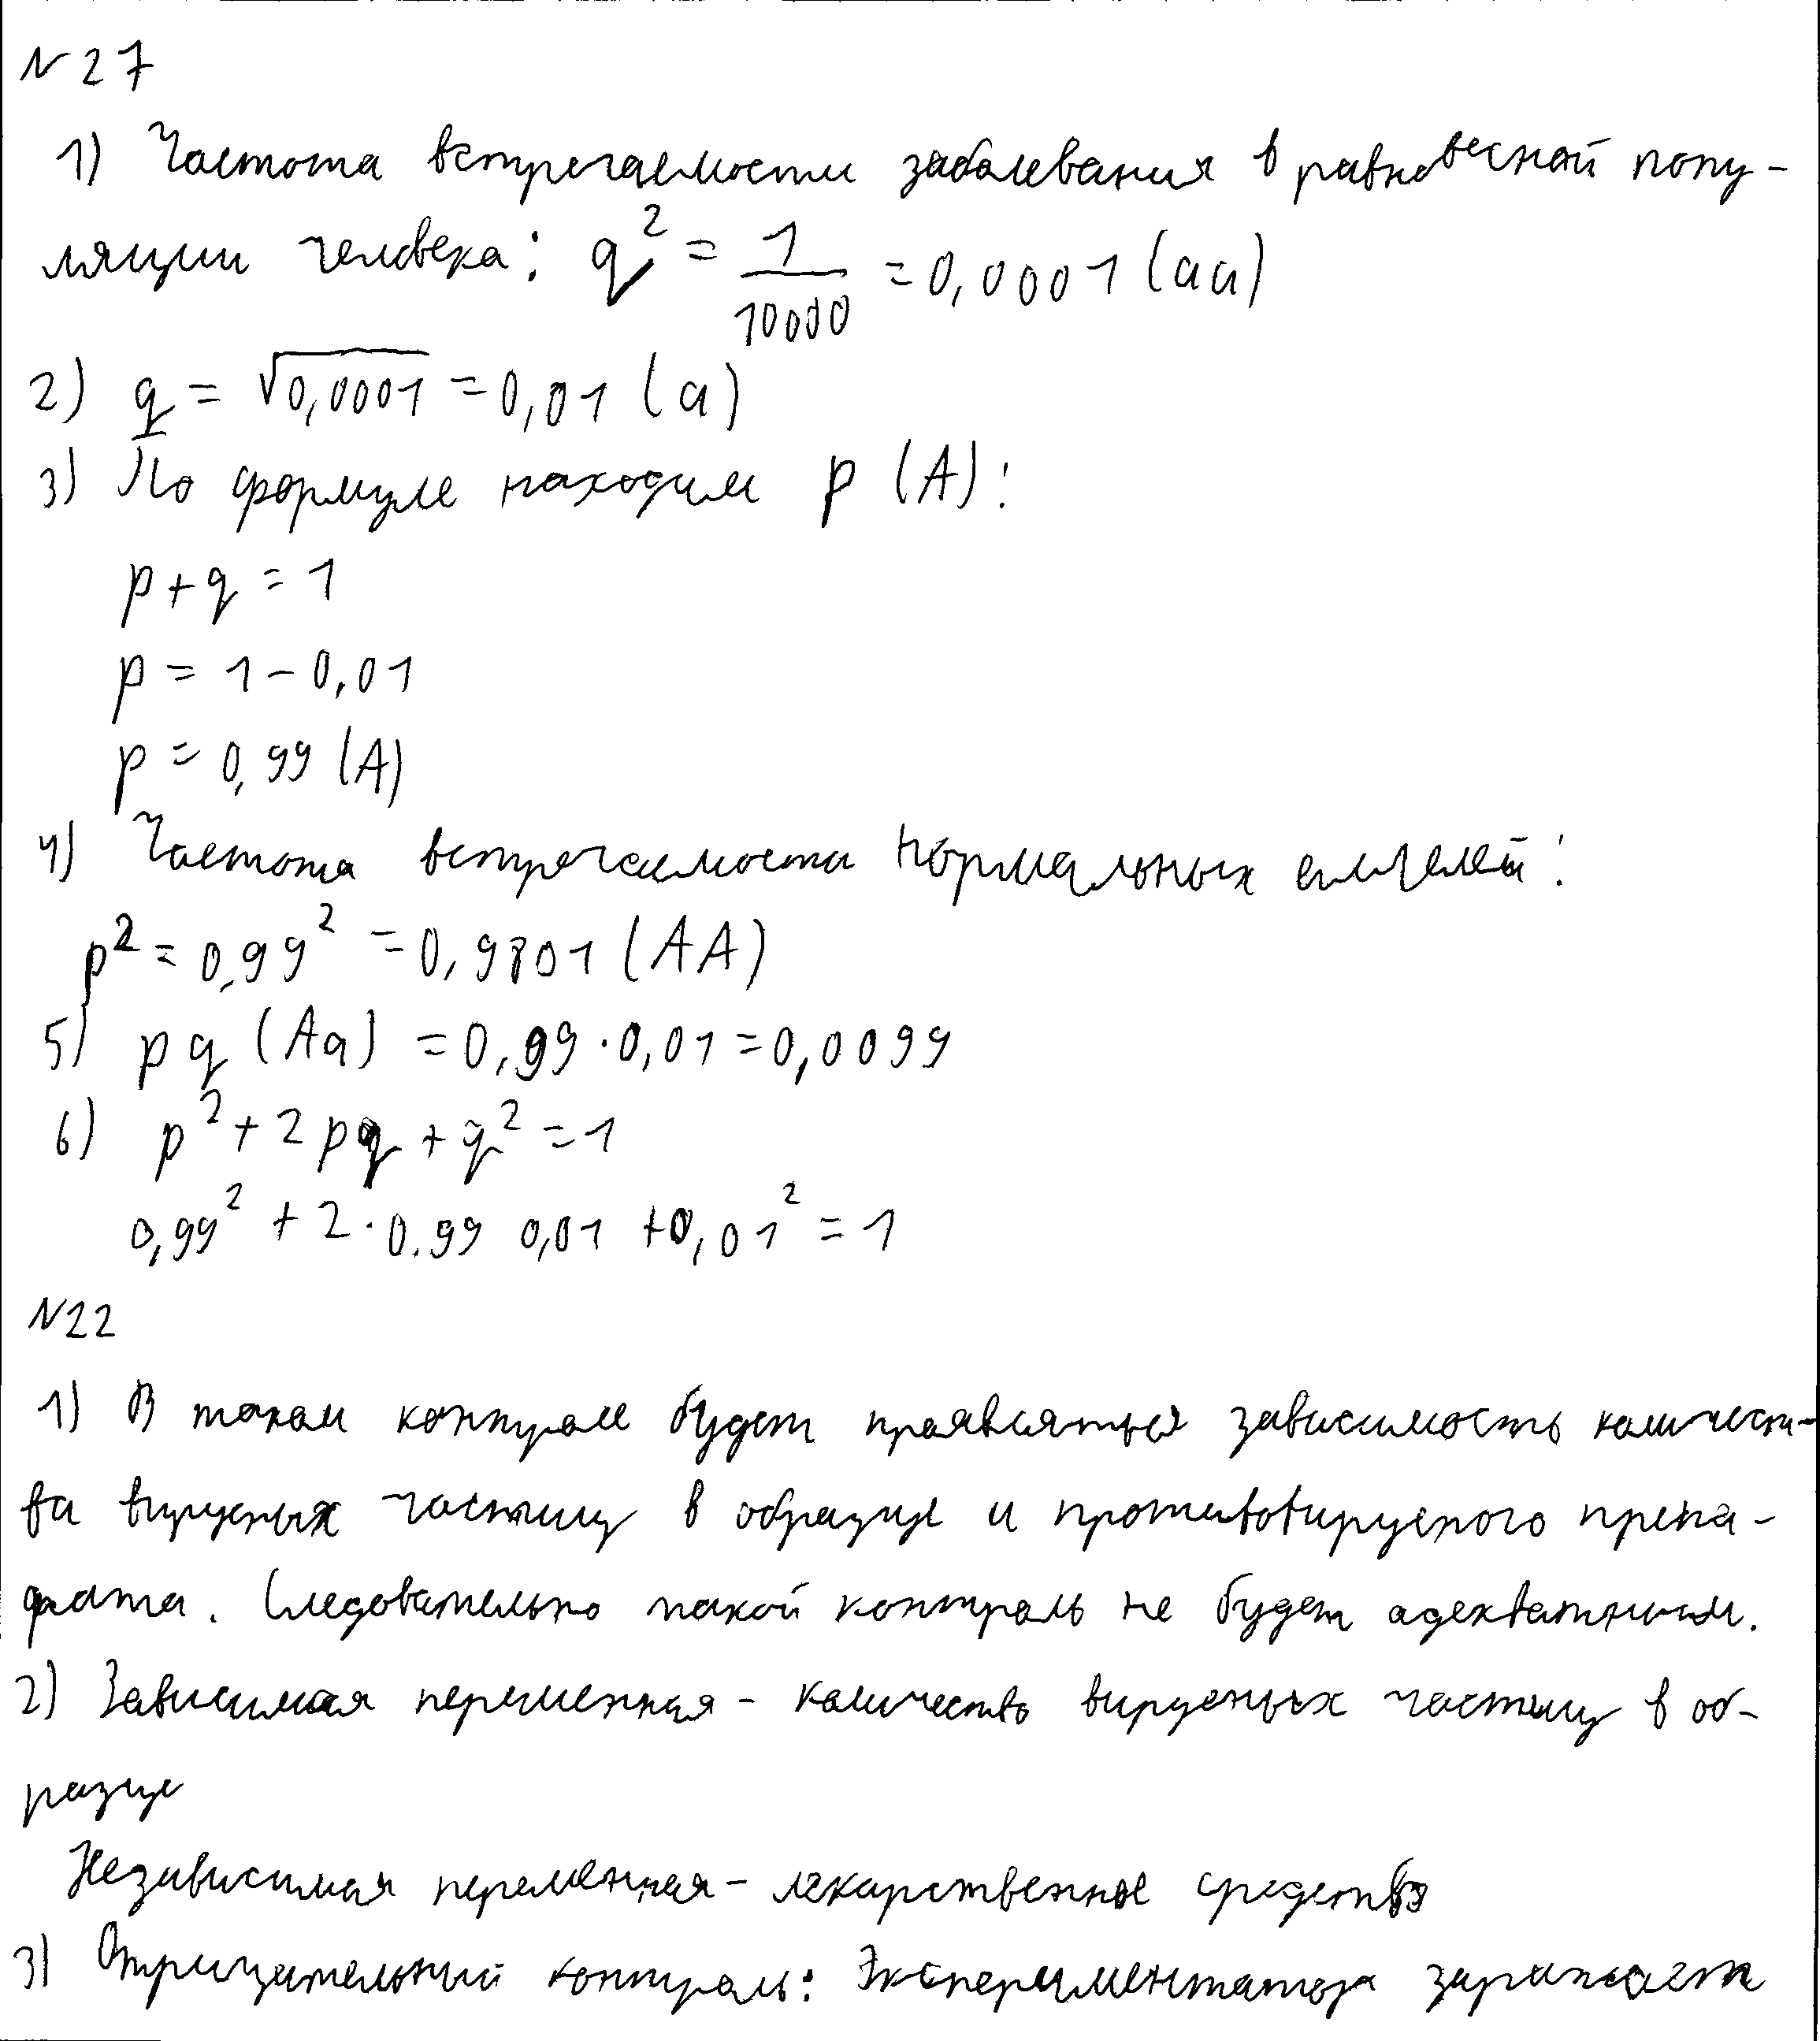 N27
1) Частота встречаемости заболевания в равновесной попу-
ляции человека: q² = 1/10000 = 0,0001 (aa)
2) q = √0,0001 = 0,01 (a)
3) По формуле находим p (A):
p + q = 1
p = 1 - 0,01
p = 0,99 (A)
4) Частота встречаемости нормальных аллелей:
p² = 0,99² = 0,9801 (AA)
5) pq (Aa) = 0,99 · 0,01 = 0,0099
6) p² + 2pq + q² = 1
0,99² + 2 · 0.99 0,01 + 0,01² = 1
N22
1) В таком контроле будет проявляться зависимость количест-
ва вирусных частиц в образце и противовирусного препа-
рата. Следовательно такой контроль не будет адекватным.
2) Зависимая переменная - количество вирусных частиц в об-
разце
Независимая переменная - лекарственное средство
3) Отрицательный контроль: Экспериментатор заражает